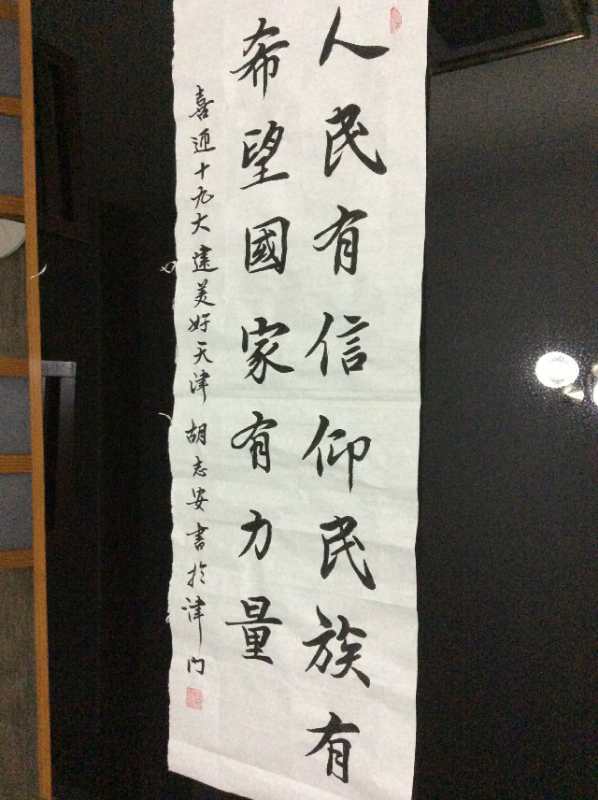 人民有信仰民族有
希望國家有力量
喜迎十九大建美好天津 胡志安書於津门